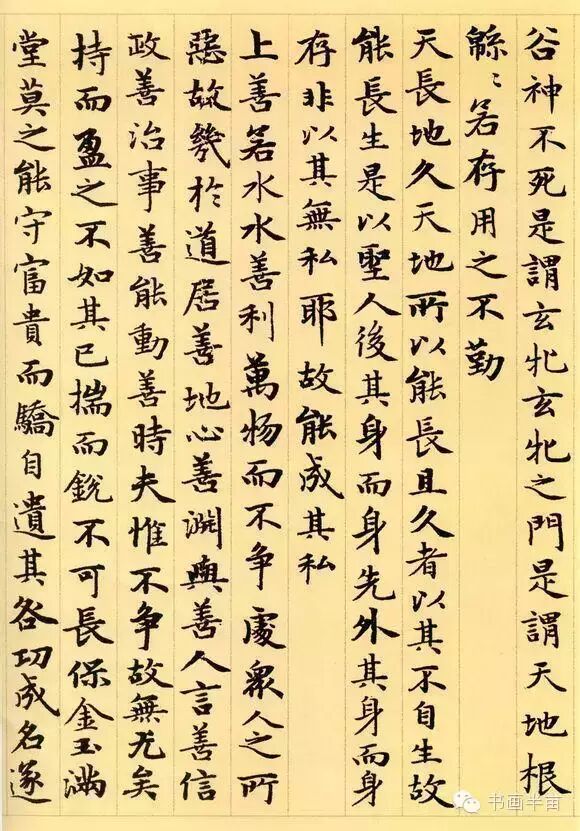 谷神不死是謂玄牝玄牝之門是謂天地根
緜〻若存用之不勤
天長地久天地所以能長且久者以其不自生故
能長生是以聖人後其身而身先外其身而身
存非以其無私耶故能成其私
上善若水水善利萬物而不争處衆人之所
惡故幾於道居善地心善淵與善人言善信
政善治事善能動善時夫惟不争故無尤矣
持而盈之不如其已揣而銳不可長保金玉滿
堂莫之能守富貴而驕自遺其咎功成名遂
书画半亩